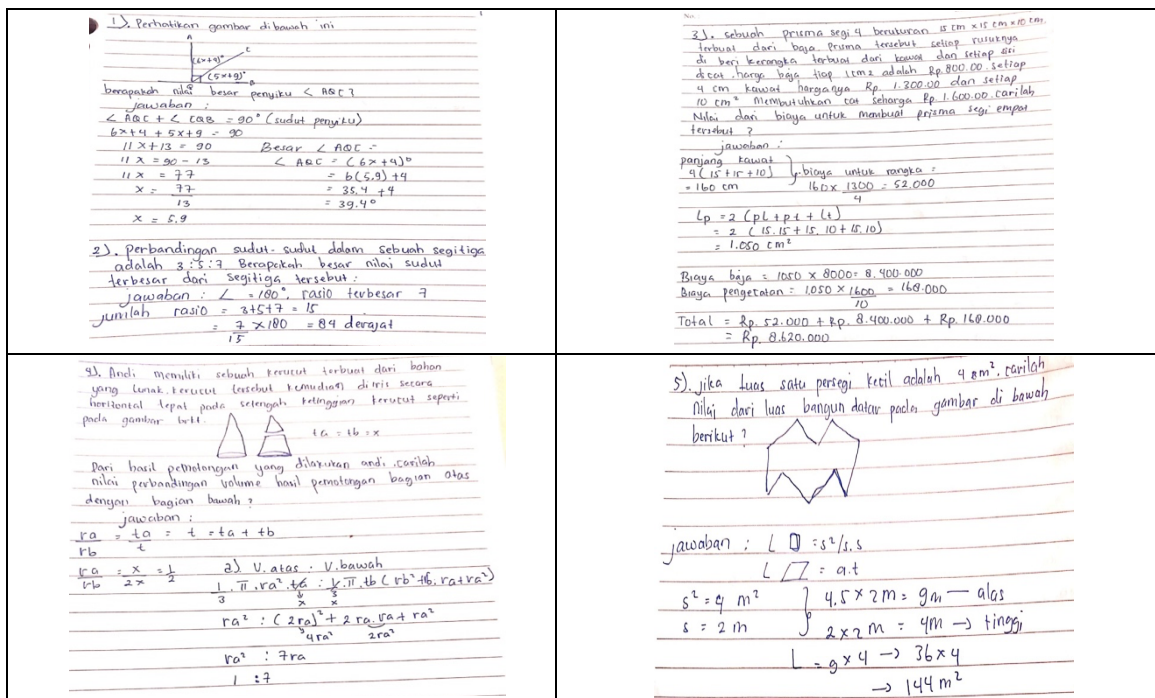 1). Perhatikan gambar dibawah ini
A
C
(6x+4)°
(5x+9)°
B
berapakah nilai besar penyiku < AQC?
jawaban :
< AQC + < CQB = 90° (sudut penyiku)
6x+4 + 5x+9 = 90
11x+13 = 90
11x = 90 - 13
11x = 77
x = 77
13
x = 5,9
Besar < AQC =
< AQC = (6x+4)°
= 6(5,9)+4
= 35,4 +4
= 39,4°
2). Perbandingan sudut-sudut dalam sebuah segitiga
adalah 3:5:7 Berapakah besar nilai sudut
terbesar dari segitiga tersebut :
jawaban : < = 180°, rasio terbesar 7
jumlah rasio = 3+5+7 = 15
= 7 x180 = 84 derajat
15
No.
3). sebuah prisma segi 4 berukuran 15 cm x 15 cm x 10 cm.
terbuat dari baja. Prisma tersebut setiap rusuknya
di beri kerangka terbuat dari kawat dan setiap sisi
dicat. harga baja tiap 1cm2 adalah Rp.800.00. setiap
4 cm kawat harganya Rp. 1.300.00 dan setiap
10 cm² membutuhkan cat seharga Rp.1.600.00. carilah
Nilai dari biaya untuk membuat prizma segi empat
tersebut ?
jawaban :
panjang kawat
4(15+15+10)
= 160 cm
biaya untuk rangka =
160x 1300 = 52.000
4
Lp = 2 (pl + pt + lt)
= 2 (15.15+15.10+15.10)
= 1.050 cm²
Biaya baja = 1050 x 8000= 8.400.000
Biaya pengecatan = 1.050 x 1600 = 168.000
10
Total = Rp. 52.000 + Rp. 8.400.000 + Rp. 168.000
= Rp. 8.620.000
4). Andi memiliki sebuah kerucut terbuat dari bahan
yang lunak. kerucut tersebut kemudian diiris secara
horizontal tepat pada setengah ketinggian kerucut seperti
pada gambar
ta = tb = x
Dari hasil pemotongan yang dilakukan andi, carilah
nilai perbandingan volume hasil pemotongan bagian atas
dengan bagian bawah ?
jawaban :
ra = ta = t = ta + tb
rb t
ra = x = 1
rb 2x 2
2) V.atas : V.bawah
1 . π . ra² . ta : 1 . π . tb (rb² + rb. ra+ra²)
3 3
x x
ra² : (2ra)² + 2 ra. ra + ra²
4ra² 2ra²
ra² : 7ra
1 : 7
5). jika luas satu persegi kecil adalah 4 cm². carilah
Nilai dari luas bangun datar pada gambar di bawah
berikut ?
jawaban : L □ = s²/s.s
L ▱ = a.t
s² = 4 m²
s = 2 m
4.5 x 2m = 9m — alas
2 x 2 m = 4m → tinggi
L = 9 x 4 → 36 x 4
→ 144 m²